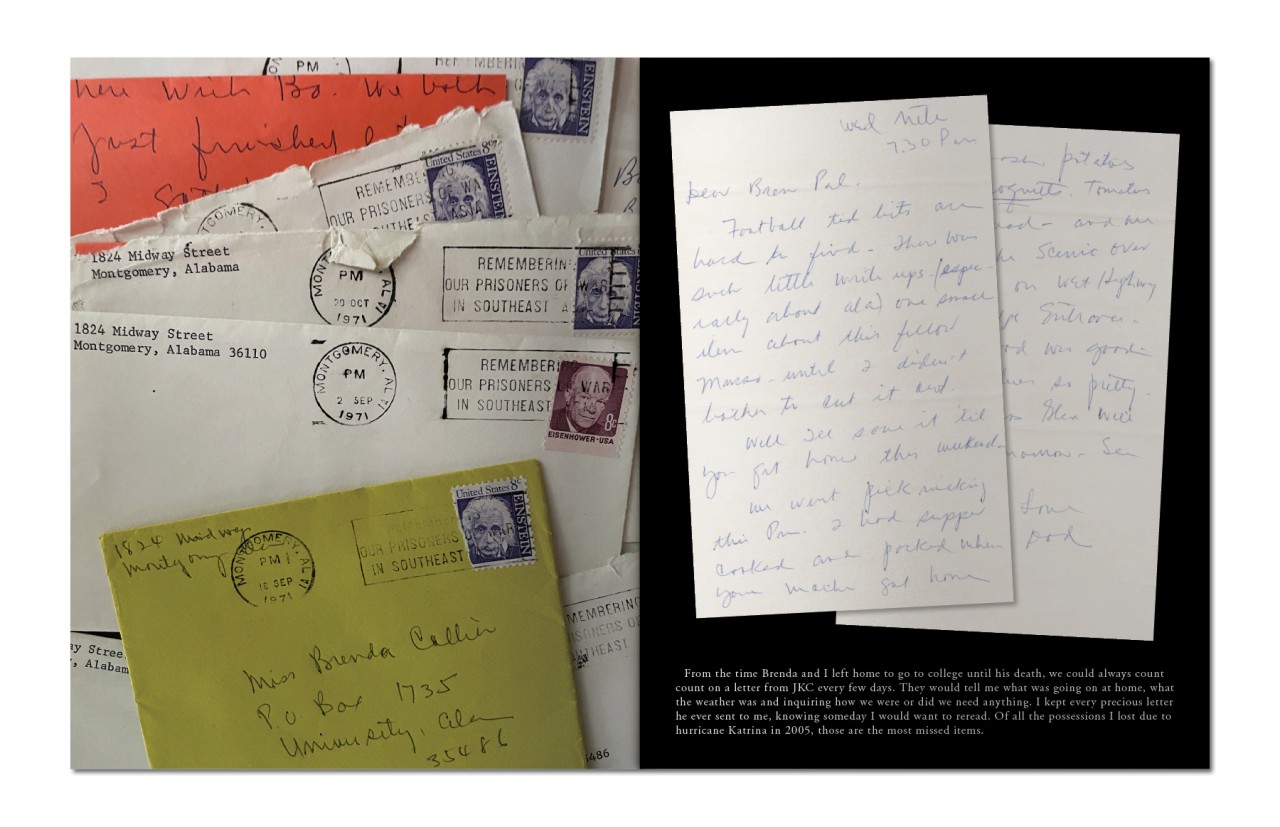 PM
REMEMBERING
EINSTEIN
here with Bo. We both
Just finished
I
United States 8c
EINSTEIN
REMEMBE
OUR PRISONERS OF WA
SOUTHE ASIA
TGOMERY,
1824 Midway Street
Montgomery, Alabama
MONT AL
PM
20 OCT
1971
REMEMBERIN
OUR PRISONERS OF WAR
IN SOUTHEAST A
United States
EINSTEIN
1824 Midway Street
Montgomery, Alabama 36110
MONTGOMERY, AL
PM
2 SEP
1971
REMEMBERI
OUR PRISONERS OF WAR
IN SOUTHEAST
8c
EISENHOWER·USA
1824 Midway
Montgomery
MONTGOMERY, AL
PM
15 SEP
1971
OUR PRISONERS WAR
IN SOUTHEAST
United States 8c
EINSTEIN
Miss Brenda Collier
PO Box 1735
University, Ala
35486
ay Stree
, Alabam
MEMBERING
ISONERS O
UTHEAST
486
Wed Nite
7:30 Pm
Dear Bren Pal.
Football tid bits are
hard to find - There was
such little write ups (espec-
ially about ala) one small
item about this fellow
Musso - until I didn't
bother to cut it out.
Well see some it 'til
you get home this weekend-
We went pick nicking
this Pm. I had supper
cooked and packed when
your mother got home
potatos
Tomatos
and
Scenic over
on West Highway
Entrance.
was good-
so pretty
Glen Will
See
Love
Dad
From the time Brenda and I left home to go to college until his death, we could always count
count on a letter from JKC every few days. They would tell me what was going on at home, what
the weather was and inquiring how we were or did we need anything. I kept every precious letter
he ever sent to me, knowing someday I would want to reread. Of all the possessions I lost due to
hurricane Katrina in 2005, those are the most missed items.